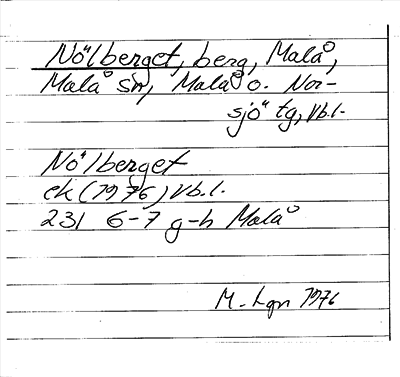 Nölberget, berg, Malå,
Malå sn, Malå o. Nor-
sjö tg, Vb.l.
Nölberget
ek (1976) Vb.l.
231 6-7 g-h Malå
M. Lqn 1976